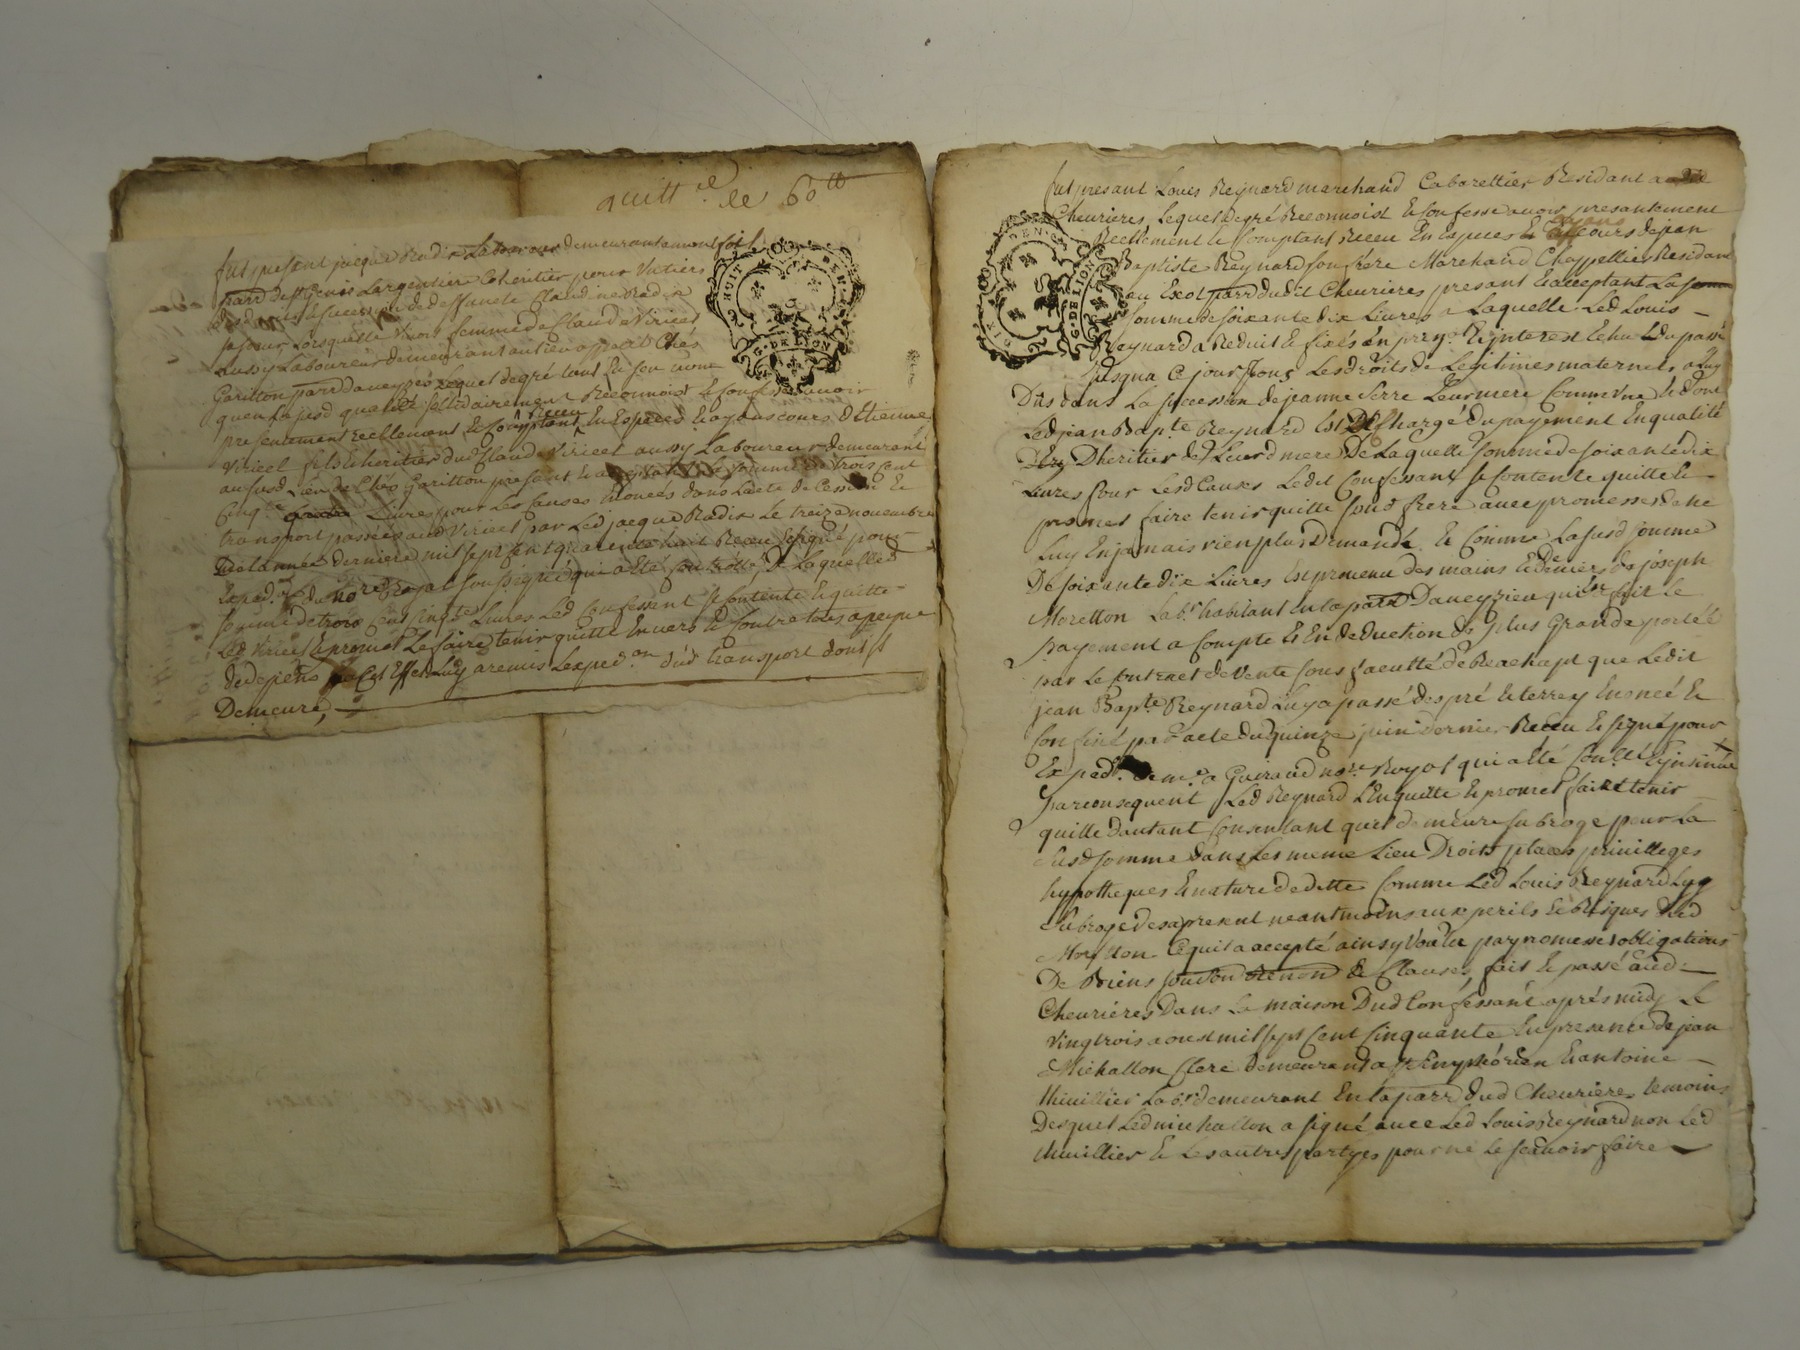 quitt.ce de 60 tt
fut present jacque Radix Laboureur demeurant au mont
parr de st Genis Largentiere Coheritier pour Untiers
de deffunte Claudine Radix
sa soeur Lorsquelle Vivoit femme de Claude Viricel
aussy Laboureur demeurant au lieu appellé Chés
Garitton parr daveyzés Lequel degré tant en son nom
quen la susd qualité sollidairement Reconnoist et confesse avoir
presentement reellement et comptant Receu En Especes et ayans cours d'Etienne
Viricel fils et heritier dud Claude Viricel aussy Laboureur demeurant
au susd Lieu de Chés Garitton present et acceptant La somme de trois cent
Cinq.te Livres pour Les Causes Enoncés dans Lacte de Cession et
transport passée aud Viricel par Led jacque Radix Le treize novembre
De Lannée derniere mil sept cent quarente huit Receu et signé pour
Exped.on du no.re Royal soussigné qui a eté controllé, De Laquelle
somme de trois Cent Cinq.te Livres Led Confessent se contente et quitte
Led Viricel et promet Le faire tenir quitte Envers et Contre tous a peyne
de depens a Cet Effet Luy a remis Lexped.on dud transport dont il
Demeure,
fut presant Louis Reynard marchand Cabarettier Residant a
Chevrieres, Lequel de gré Reconnoist et Confesse avoir presantement
Reellement et Comptant Receu En especes et ayans Cours de jean
Baptiste Reynard son frere Marchand Chappellier Residant
au Excot parr dudit Chevrieres presant et acceptant La
somme de soixante dix Livres a Laquelle Led Louis
Reynard a Reduit et fixés En prin.l et interest Echu du passé
jusqua Ce jour Tous Les droits de Legitimes maternels a Luy
Dûs dans La succession de jeanne Serre Leur mere Commune et dont
Led jean Bap.te Reynard Est Chargé du payement En qualité
D'heritier de Leurd mere De Laquelle somme de soixante dix
Livres pour Lesd Causes Ledit Confessant se contente quitte et
promet faire tenir quitte sond frere avec promesses de ne
Luy En jamais rien plus Demandé. Et Comme La susd somme
De soixante dix Livres Est provenu des mains et deniers de joseph
Moretton Lab.r habitant En la parr Daveyzieu qui En fait Le
payement a Compte et En deduction de plus Grande portée
par Le Contract de Vente sous faculté de Reachapt que Ledit
jean Bap.te Reynard Luy a passé des pré et terrey Enoncé et
Confiné par acte du quinze juin Dernier Receu et signé pour
Exped.on de m.e Guiraud no.re Royal qui a eté Con.llé et jnsinué
par consequent Led Reynard L'En quitte et promet faire tenir
quitte dautant Consentant quil demeure subrogé pour La
susd somme dans Les meme Lieu Droits places privilleges
hypotheques et nature de dette Comme Led Louis Reynard Lyy
subroge des a present neantmoins aux perils et Risques dud
Moretton Cequil a accepté ainsy Voulu par promesses obligations
De Biens et Clauses, fait et passé aud
Chevriéres Dans La maison Dud Confessant aprés midy Le
Vingtrois aoust mil sept Cent Cinquante En presence de jean
Michallon Clerc demeurant a st Simphorien et antoine
thivillier Lab.r demeurant En La parr dud Chevrieres temoins
Desquel Led michallon a signé avec Led Louis Reynard non Led
thivillier et Les autres partyes pour ne Le scavoir faire
G. DE LYON
G. DE LION